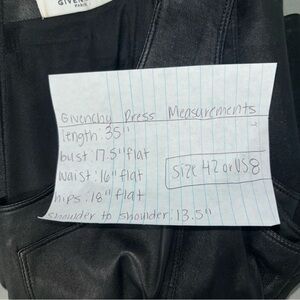 GIVENCHY
PARIS
Givenchy Dress Measurements
length: 35"
bust: 17.5" flat
waist: 16" flat
hips: 18" flat
size 42 or US 8
shoulder to shoulder: 13.5"